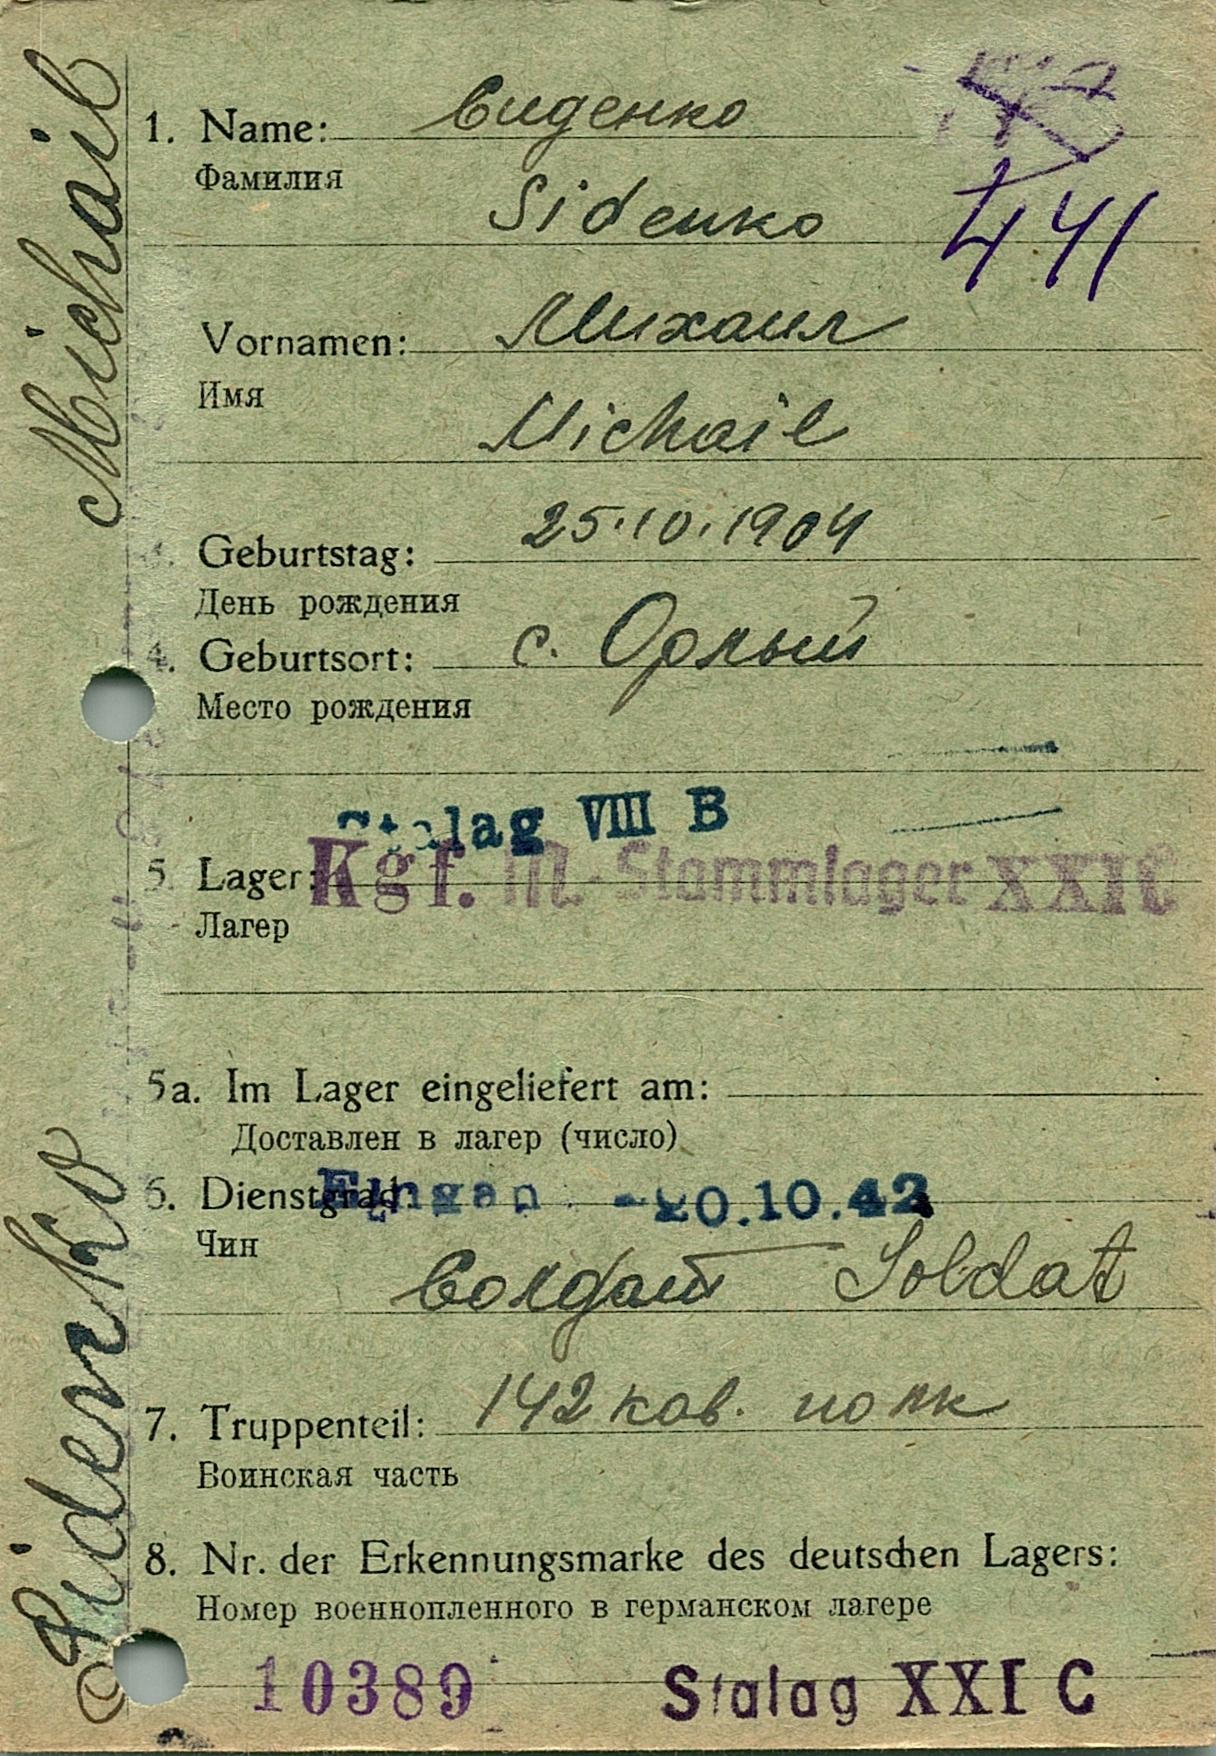 1. Name: Сиденко
Фамилия
Sidenko
441
Vornamen: Михаил
Имя
Michail
3. Geburtstag: 25.10.1904
День рождения
4. Geburtsort: с. Орлый
Место рождения
Stalag VIII B
5. Lager: Kgf. M.-Stammlager XXI C
Лагерь
5a. Im Lager eingeliefert am:
Доставлен в лагер (число)
6. Dienstgrad
Eingan -20.10.42
Чин
Солдат Soldat
7. Truppenteil: 142 кав. полк
Воинская часть
8. Nr. der Erkennungsmarke des deutschen Lagers:
Номер военнопленного в германском лагере
10389 Stalag XXI C
Sidenko Michail